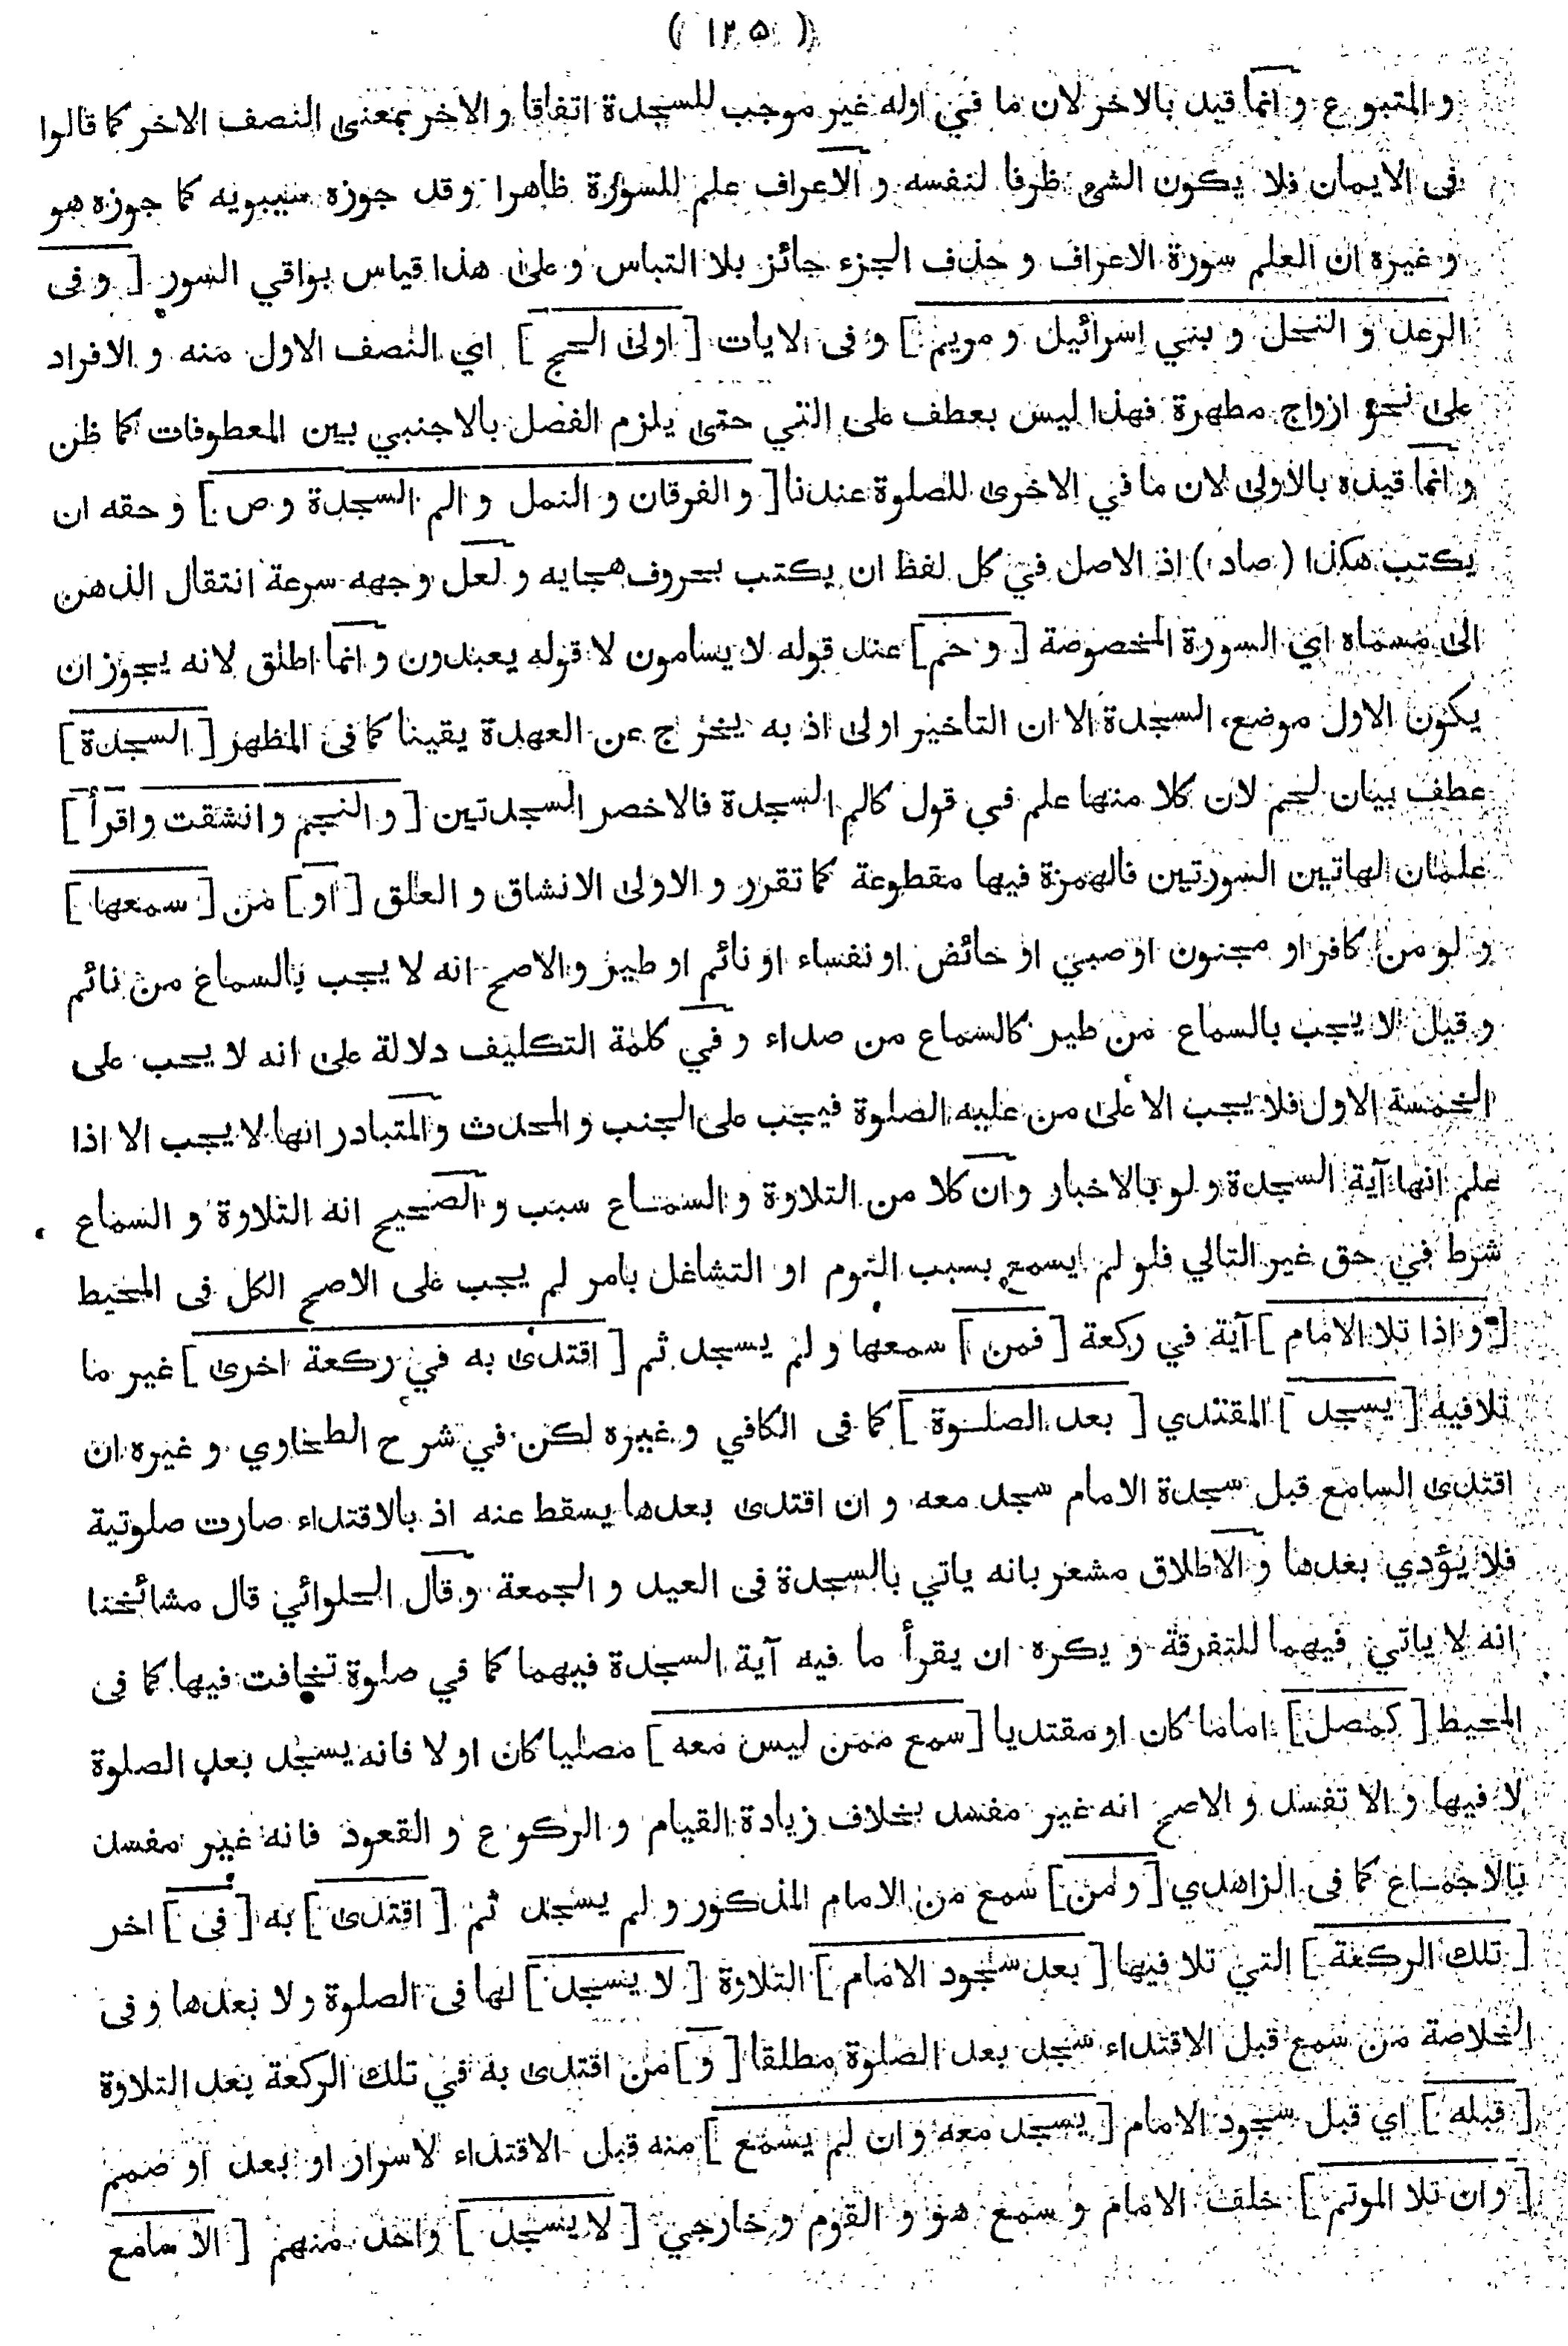 ( ١٢٥ )
و المتبوع و انما قيد بالاخر لان ما في اوله غير موجب للسجدة اتفاقا و الاخر بمعنى النصف الاخر كما قالوا
فى الايمان فلا يكون الشئ ظرفا لنفسه و الاعراف علم للسورة ظاهرا و قد جوزه سيبويه كما جوزه هو
و غيره ان العلم سورة الاعراف و حذف الجزء جائز بلا التباس و على هذا قياس بواقي السور [ و فى
الرعد و النحل و بني اسرائيل و مريم ] و فى الايات [ اولى الحج ] اي النصف الاول منه و الافراد
على نحو ازواج مطهرة فهذا ليس بعطف على التي حتى يلزم الفصل بالاجنبي بين المعطوفات كما ظن
و انما قيده بالاولى لان ما في الاخرى للصلوة عندنا [ و الفرقان و النمل و الم السجدة و ص ] و حقه ان
يكتب هكذا ( صاد ) اذ الاصل في كل لفظ ان يكتب بحروف هجايه و لعل وجهه سرعة انتقال الذهن
الى مسماه اي السورة المخصوصة [ و حم ] عند قوله لا يسامون لا قوله يعبدون و انما اطلق لانه يجوز ان
يكون الاول موضع السجدة الا ان التأخير اولى اذ به يخرج عن العهدة يقينا كما فى المظهر [ السجدة ]
عطف بيان لحم لان كلا منها علم في قول كالم السجدة فالاخصر السجدتين [ و النجم و انشقت و اقرأ ]
علمان لهاتين السورتين فالهمزة فيها مقطوعة كما تقرر و الاولى الانشاق و العلق [ او ] من [ سمعها ]
و لو من كافر او مجنون او صبي او حائض او نفساء او نائم او طير و الاصح انه لا يجب بالسماع من نائم
و قيل لا يجب بالسماع من طير كالسماع من صداء و في كلمة التكليف دلالة على انه لا يجب على
الخمسة الاول فلا يجب الا على من عليه الصلوة فيجب على الجنب و المحدث و المتبادر انها لا يجب الا اذا
علم انها آية السجدة و لو بالاخبار و ان كلا من التلاوة و السماع سبب و الصحيح انه التلاوة و السماع
شرط في حق غير التالي فلو لم يسمع بسبب النوم او التشاغل بامر لم يجب على الاصح الكل فى المحيط
[ و اذا تلا الامام ] آية في ركعة [ فمن ] سمعها و لم يسجد ثم [ اقتدى به في ركعة اخرى ] غير ما
تلا فيه [ يسجد ] المقتدي [ بعد الصلوة ] كما فى الكافي و غيره لكن في شرح الطحاوي و غيره ان
اقتدى السامع قبل سجدة الامام سجد معه و ان اقتدى بعدها يسقط عنه اذ بالاقتداء صارت صلوتية
فلا يؤدي بعدها و الاطلاق مشعر بانه ياتي بالسجدة فى العيد و الجمعة و قال الحلوائي قال مشائخنا
انه لا ياتي فيهما للتفرقة و يكره ان يقرأ ما فيه آية السجدة فيهما كما في صلوة تخافت فيها كما فى
المحيط [ كمصل ] اماما كان او مقتديا [ سمع ممن ليس معه ] مصليا كان او لا فانه يسجد بعد الصلوة
لا فيها و الا تفسد و الاصح انه غير مفسد بخلاف زيادة القيام و الركوع و القعود فانه غير مفسد
بالاجماع كما فى الزاهدي [ و من ] سمع من الامام المذكور و لم يسجد ثم [ اقتدى ] به [ فى ] اخر
[ تلك الركعة ] التي تلا فيها [ بعد سجود الامام ] التلاوة [ لا يسجد ] لها فى الصلوة و لا بعدها و فى
الخلاصة من سمع قبل الاقتداء سجد بعد الصلوة مطلقا [ و ] من اقتدى به في تلك الركعة بعد التلاوة
[ قبله ] اي قبل سجود الامام [ يسجد معه و ان لم يسمع ] منه قبل الاقتداء لاسرار او بعد او صمم
[ و ان تلا الموتم ] خلف الامام و سمع هو و القوم و خارجي [ لا يسجد ] واحد منهم [ الا سامع